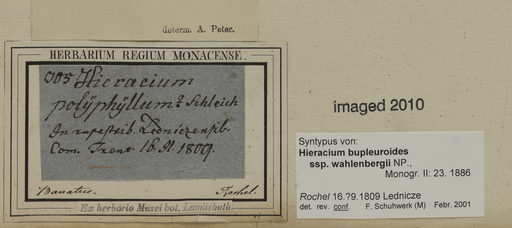 determ. A. Peter.
HERBARIUM REGIUM MONACENSE.
005 Hieracium
polÿphÿllum? Schleich
In rupestrib. Lednizensib.
Com. Trent 16. 1809.
Banatus. Rochel.
Ex herbario Musei bot. Landishuth.
imaged 2010
Syntypus von:
Hieracium bupleuroides
ssp. wahlenbergii NP.,
Monogr. II: 23. 1886
Rochel 16.?9.1809 Lednicze
det. rev. conf. F. Schuhwerk (M) Febr. 2001